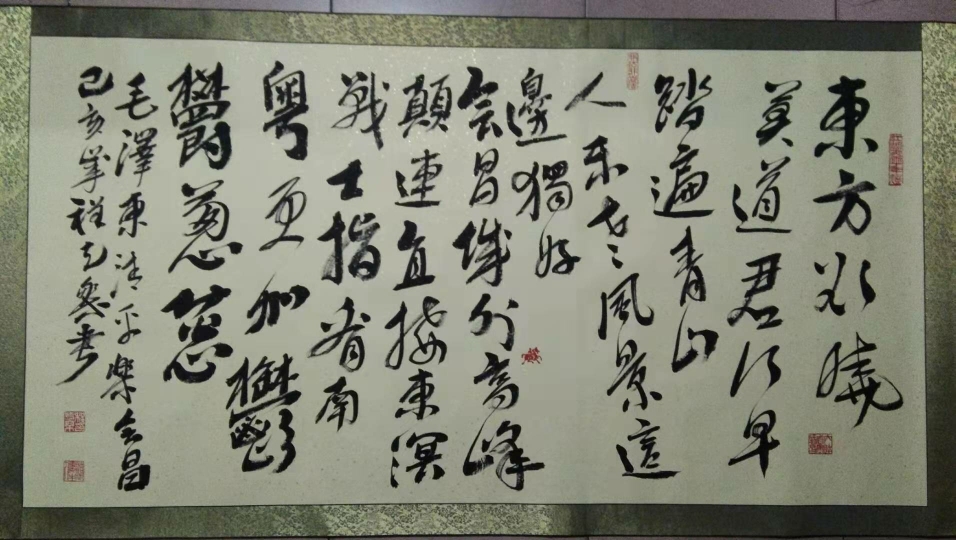 東方欲曉
莫道君行早
踏遍青山
人未老風景這
邊獨好
会昌城外高峰
顛連直接東溟
戰士指看南
粤更加鬱
鬱葱蔥
毛澤東清平樂会昌
己亥 祥 書